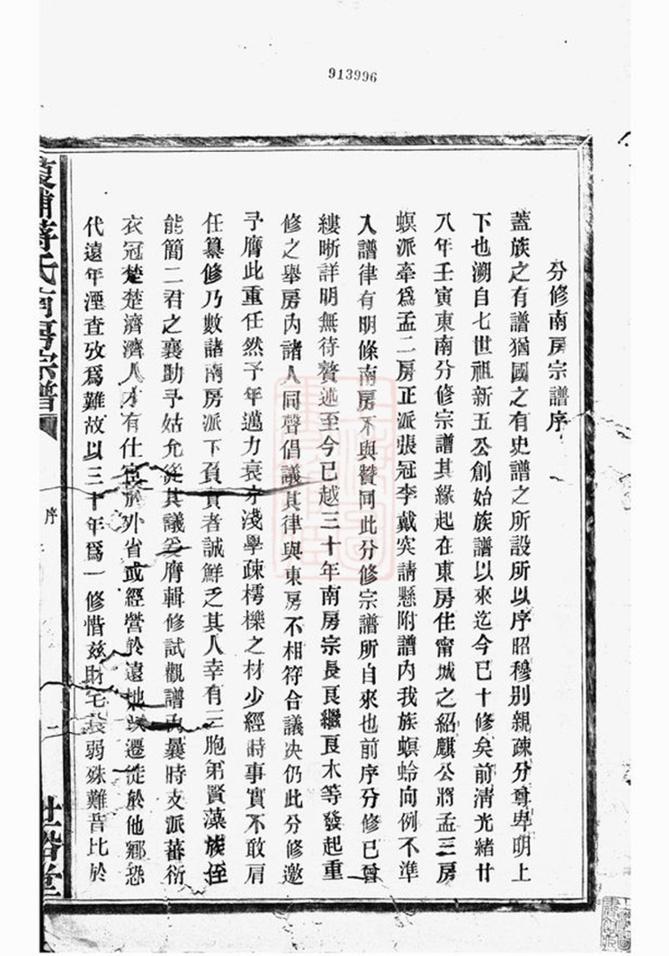 913996
分修南房宗譜序
蓋族之有譜猶國之有史譜之所設所以序昭穆別親疎分尊卑明上
下也溯自七世祖新五公創始族譜以來迄今已十修矣前清光緒廿
八年壬寅東南分修宗譜其緣起在東房住甯城之紹麒公將孟三房
螟派牽爲孟二房正派張冠李戴突請懸附譜內我族螟蛉向例不準
入譜律有明條南房不與贊同此分修宗譜所自來也前序分修已曾
縷晰詳明無待贅述至今已越三十年南房宗長良繼良木等發起重
修之舉房內諸人同聲倡議其律與東房不相符合議決仍此分修邀
予膺此重任然予年邁力衰才淺學疎樗櫟之材少經時事實不敢肩
任纂修乃數諸南房派下負責者誠鮮乏其人幸有三胞弟賢藻族侄
能簡二君之襄助予姑允從其議爰膺輯修試觀譜內曩時支派蕃衍
衣冠楚楚濟濟人才有仕宦於外省或經營於遠地或遷徙於他鄉恐
代遠年湮查攷爲難故以三十年爲一修惜茲財宅衰弱殊難昔比於
蔣氏南房宗譜
序
一